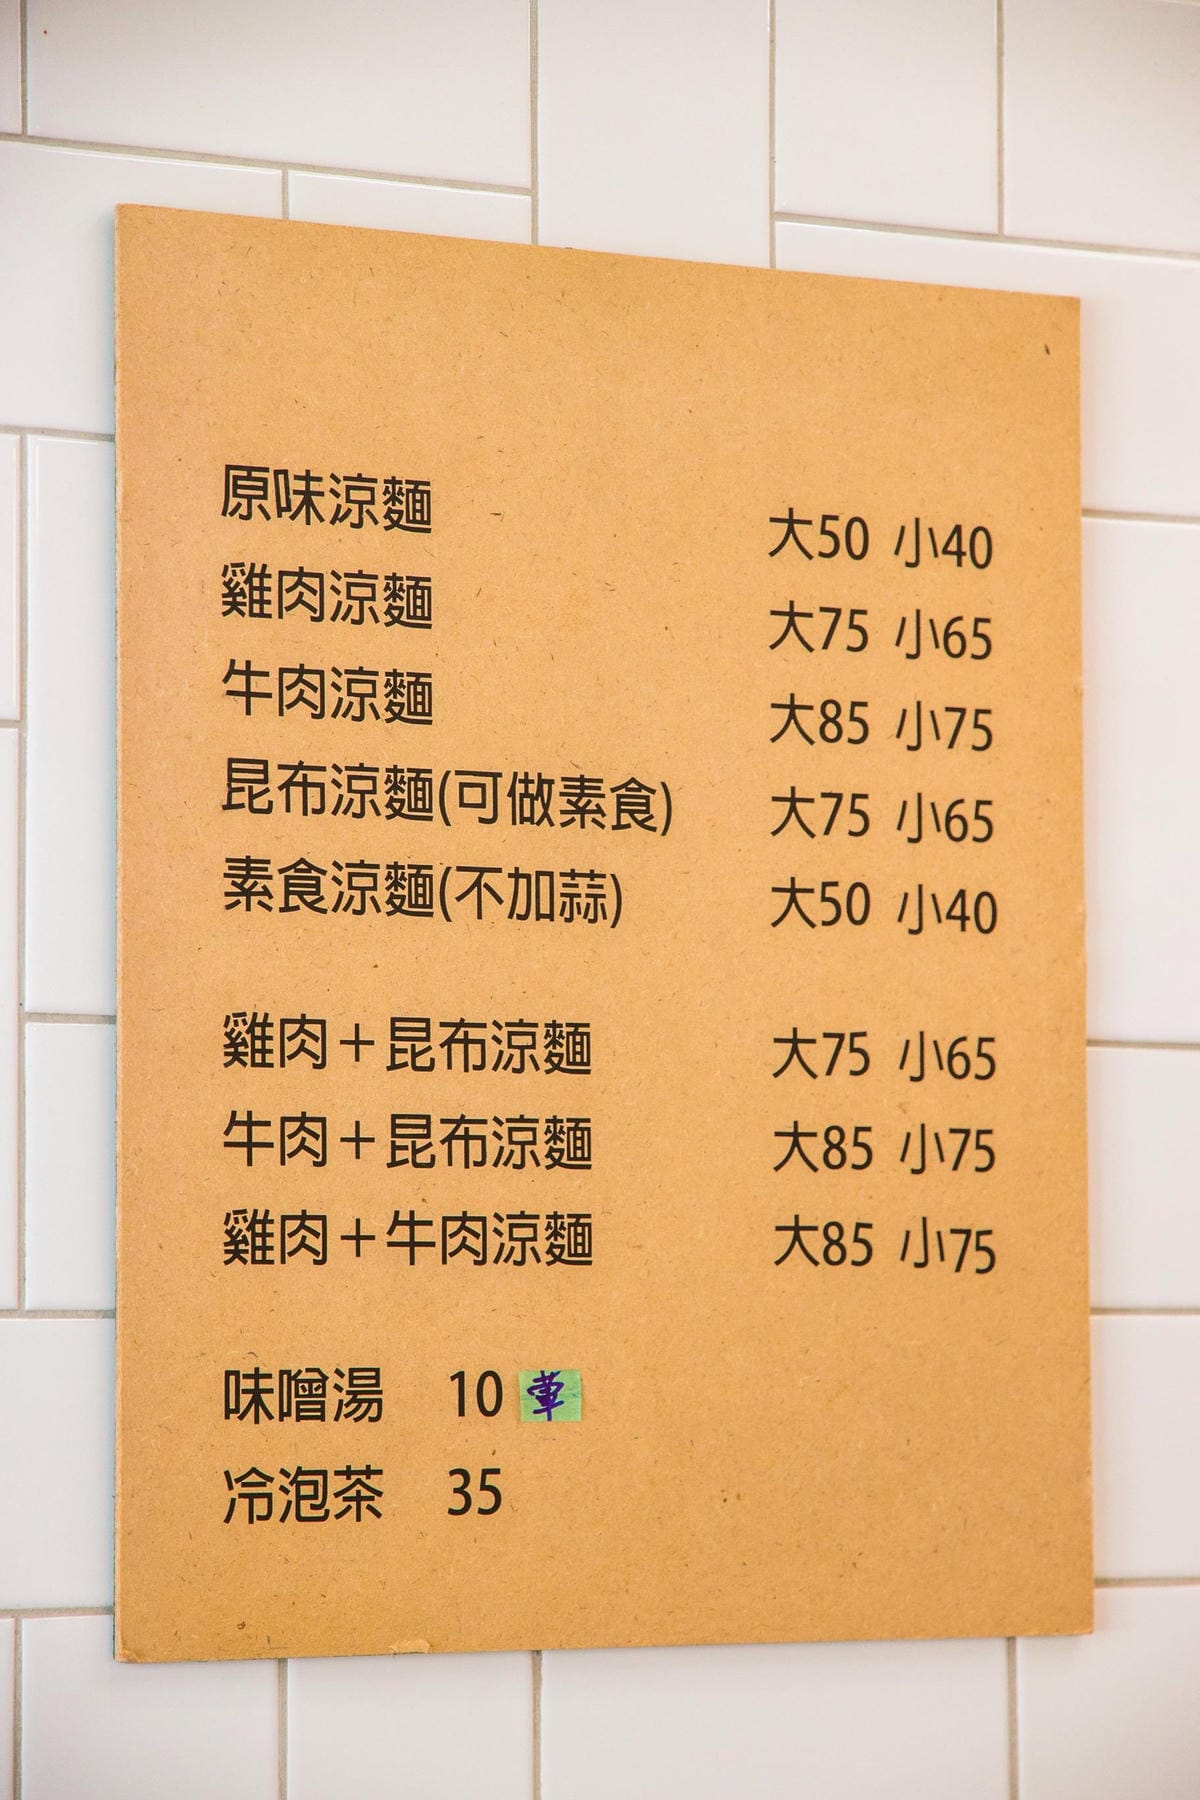 原味涼麵 大50 小40
雞肉涼麵 大75 小65
牛肉涼麵 大85 小75
昆布涼麵(可做素食) 大75 小65
素食涼麵(不加蒜) 大50 小40
雞肉＋昆布涼麵 大75 小65
牛肉＋昆布涼麵 大85 小75
雞肉＋牛肉涼麵 大85 小75
味噌湯 10 葷
冷泡茶 35